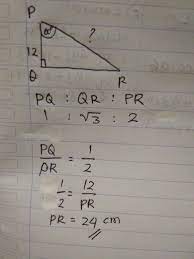 P
60°
?
12
Q
R
PQ : QR : PR
1 : √3 : 2
PQ/PR = 1/2
1/2 = 12/PR
PR = 24 cm